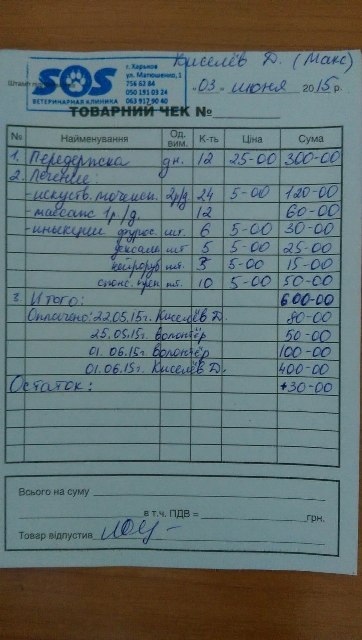 Киселёв Д. (Макс)
SOS
ВЕТЕРИНАРНАЯ КЛИНИКА
г. Харьков
ул. Матюшенко, 1
756 63 84
050 191 03 24
063 917 90 40
Штамп
"03" июня 2015 р.
ТОВАРНИЙ ЧЕК №
№ Найменування Од. вим. К-ть Ціна Сума
1. Передержка дн. 12 25-00 300-00
2. Лечение:
-искуств. мочеисп. 2р/д 24 5-00 120-00
-массаж 1р./д. 12 60-00
-инъекции фурос. шт. 6 5-00 30-00
дексаме шт 5 5-00 25-00
нейроруб шт. 3 5-00 15-00
шт. 10 5-00 50-00
3. Итого: 600-00
Оплачено: 22.05.15г. Киселёв Д. 80-00
25.05.15г. Волонтёр 50-00
01.06.15г Волонтёр 100-00
01.06.15г. Киселёв Д. 400-00
Остаток: +30-00
Всього на суму
в т.ч. ПДВ = грн.
Товар відпустив